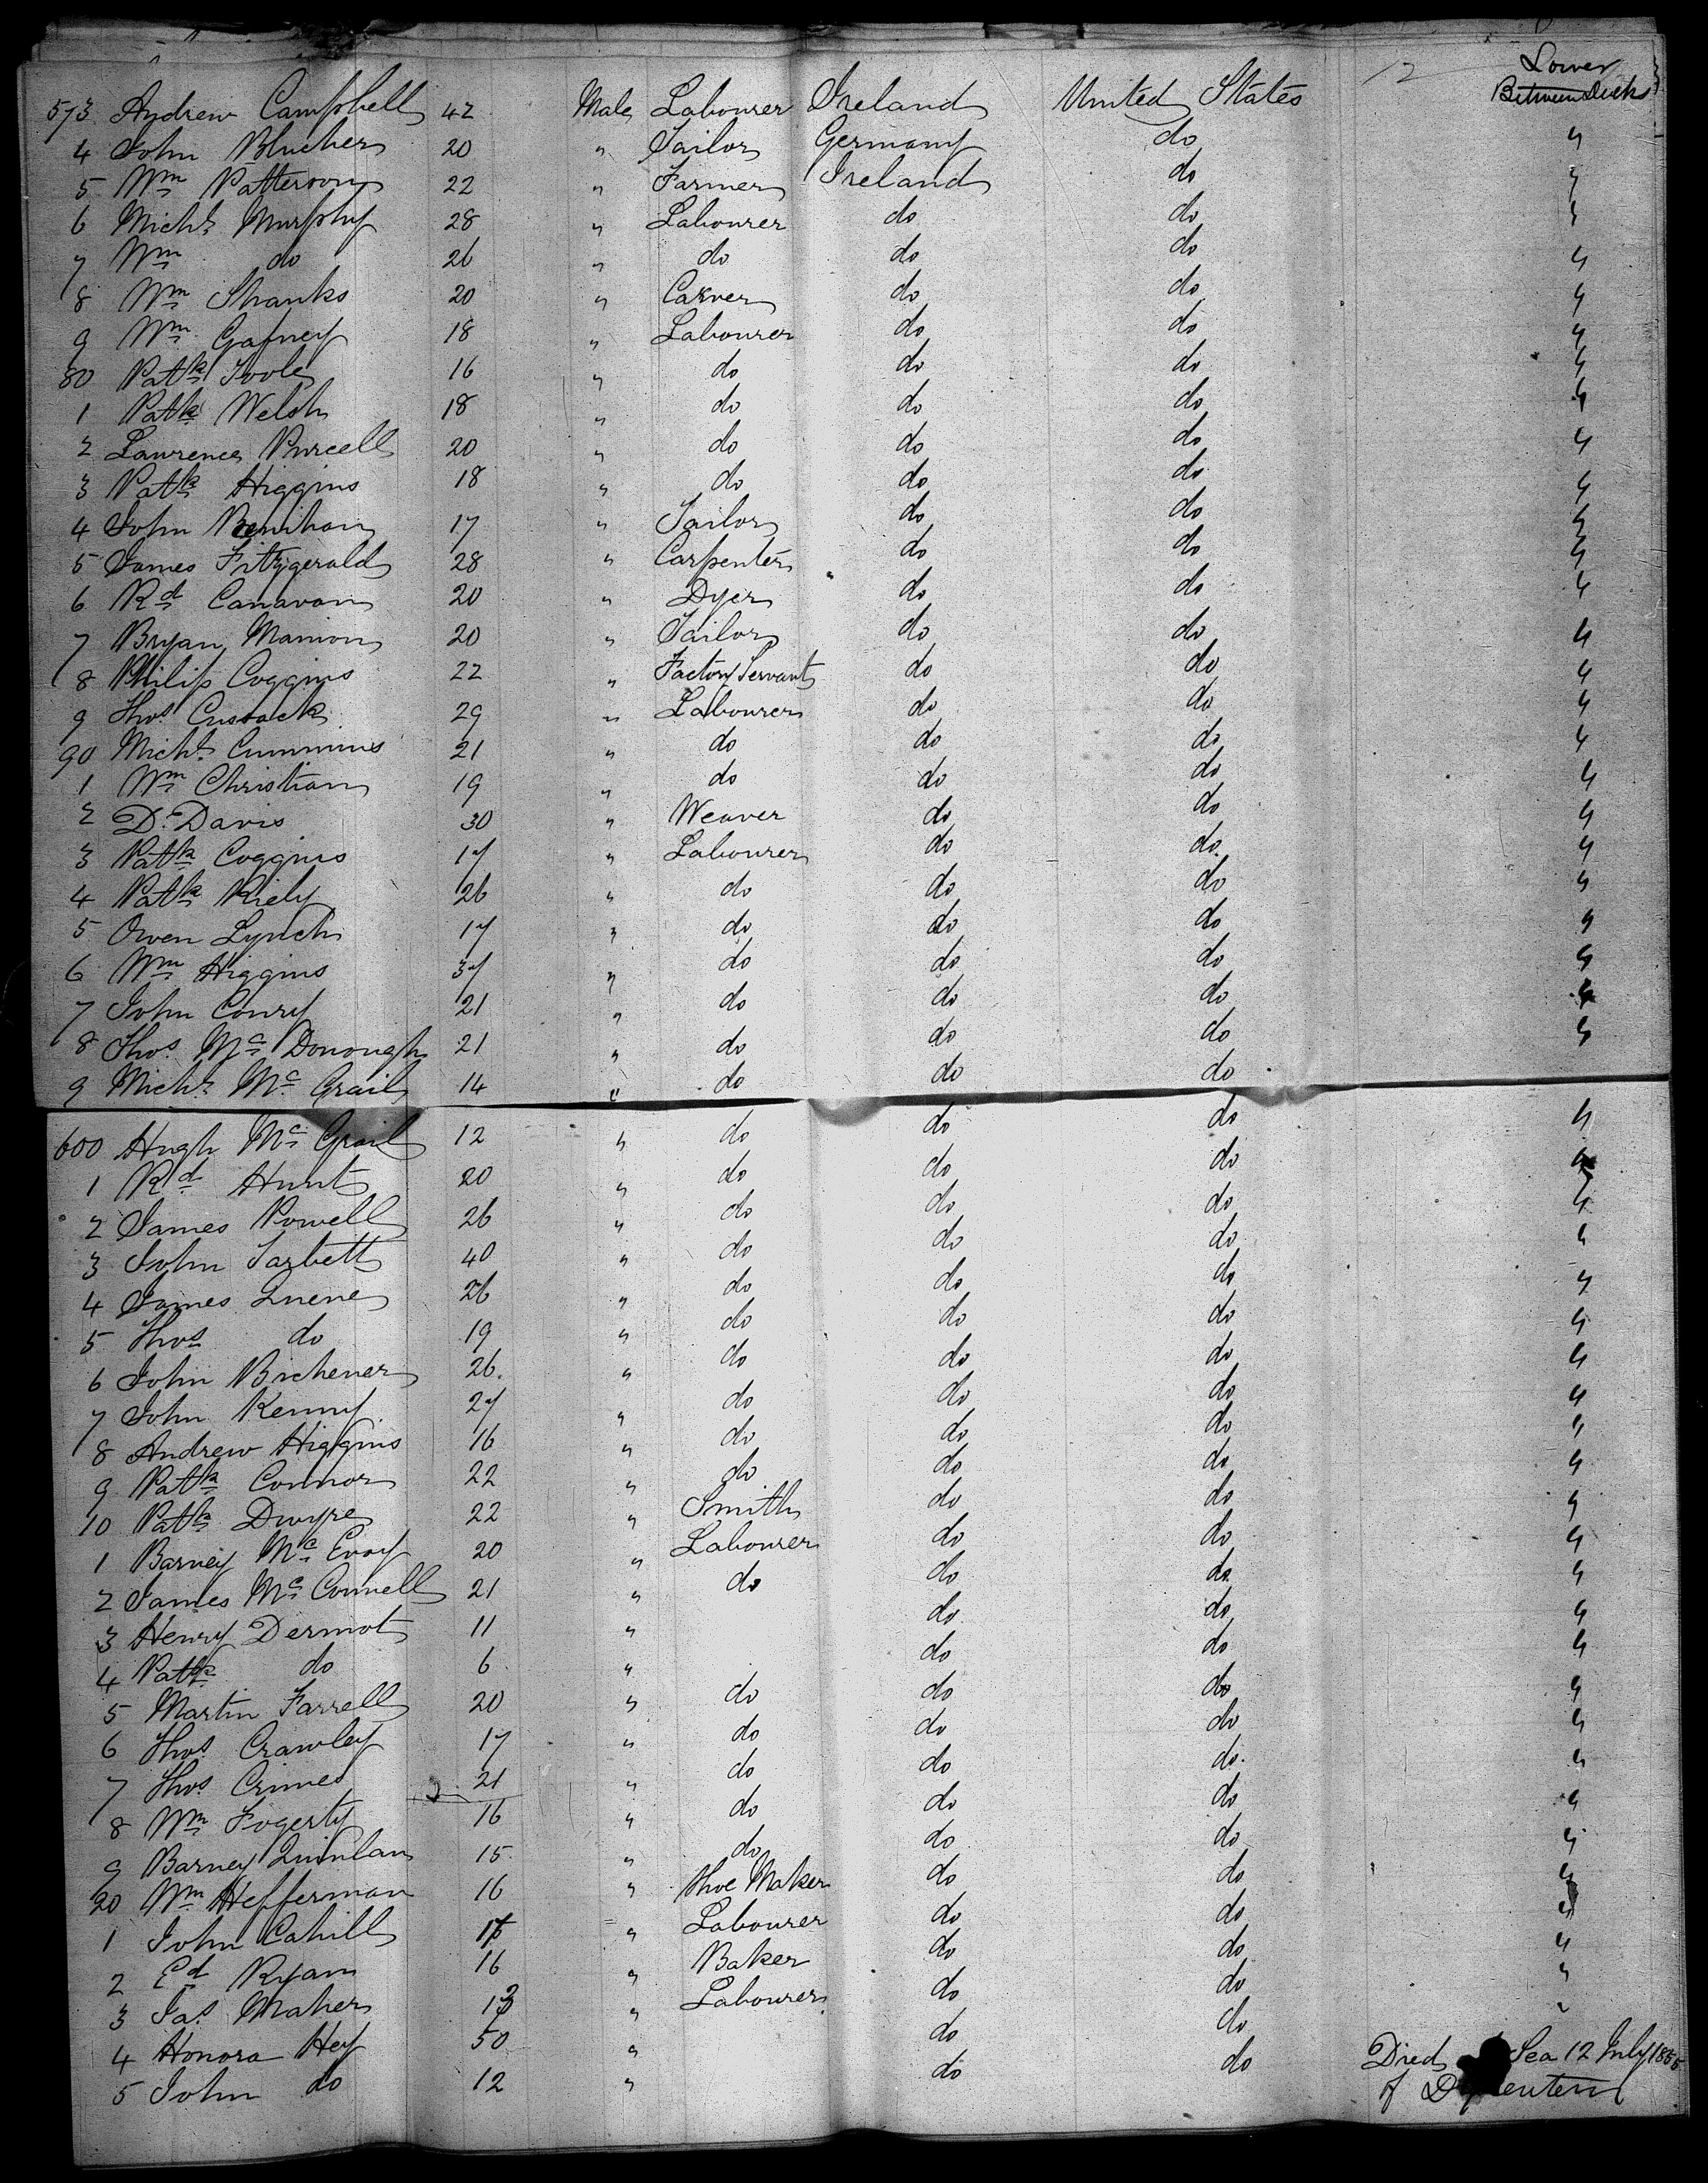 12 Lower
573 Andrew Campbell 42 Male Labourer Ireland United States Between Decks
4 John Blucher 20 " Tailor Germany do "
5 Wm Patterson 22 " Farmer Ireland do "
6 Michl Murphy 28 " Labourer do do "
7 Wm do 26 " do do do "
8 Wm Shanks 20 " Carver do do "
9 Wm Gafney 18 " Labourer do do "
80 Patk Toole 16 " do do do "
1 Patk Welsh 18 " do do do "
2 Lawrence Purcell 20 " do do do "
3 Patk Higgins 18 " do do do "
4 John 17 " Tailor do do "
5 James Fitzgerald 28 " Carpenter do do "
6 Rd Canavan 20 " Dyer do do "
7 Bryan Manion 20 " Tailor do do "
8 Philip Coggins 22 " Factory Servant do do "
9 Thos Cussack 29 " Labourer do do "
90 Michl Cummins 21 " do do do "
1 Wm Christian 19 " do do do "
2 D. Davis 30 " Weaver do do "
3 Patk Coggins 17 " Labourer do do "
4 Patk Kiely 26 " do do do "
5 Owen Lynch 17 " do do do "
6 Wm Higgins 37 " do do do "
7 John Conry 21 " do do do "
8 Thos Mc Donough 21 " do do do "
9 Michl Mc Grail 14 " do do do
600 Hugh Mc Grail 12 " do do do "
1 Rd Hunt 20 " do do do "
2 James Powell 26 " do do do "
3 John Tarbett 40 " do do do "
4 James Quene 26 " do do do "
5 Thos do 19 " do do do "
6 John Bichener 26 " do do do "
7 John Kenny 27 " do do do "
8 Andrew Higgins 16 " do do do "
9 Patk Connor 22 " do do do "
10 Patk Dwyre 22 " Smith do do "
1 Barney Mc Evoy 20 " Labourer do do "
2 James Mc Connell 21 " do do do "
3 Henry Dermot 11 " do do "
4 Patk do 6 " do do "
5 Martin Farrell 20 " do do do "
6 Thos Crawley 17 " do do do "
7 Thos Crimes 21 " do do do "
8 Wm Fogerty 16 " do do do "
9 Barney Quinlan 15 " do do do "
20 Wm Hefferman 16 " Shoe Maker do do "
1 John Cahill " Labourer do do "
2 Ed Ryan 16 " Baker do do "
3 Jas Maher " Labourer do do "
4 Honora Hey 50 " do do
5 John do 12 " do do Died Sea 12 July 1855
of Dysentery